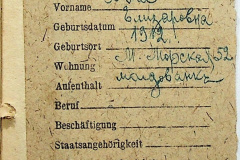 Vorname
Елизаровна
Geburtsdatum 1912
Geburtsort
Wohnung М. Морская, 52
Aufenthalt молдованка
Beruf
Beschäftigung
Staatsangehörigkeit